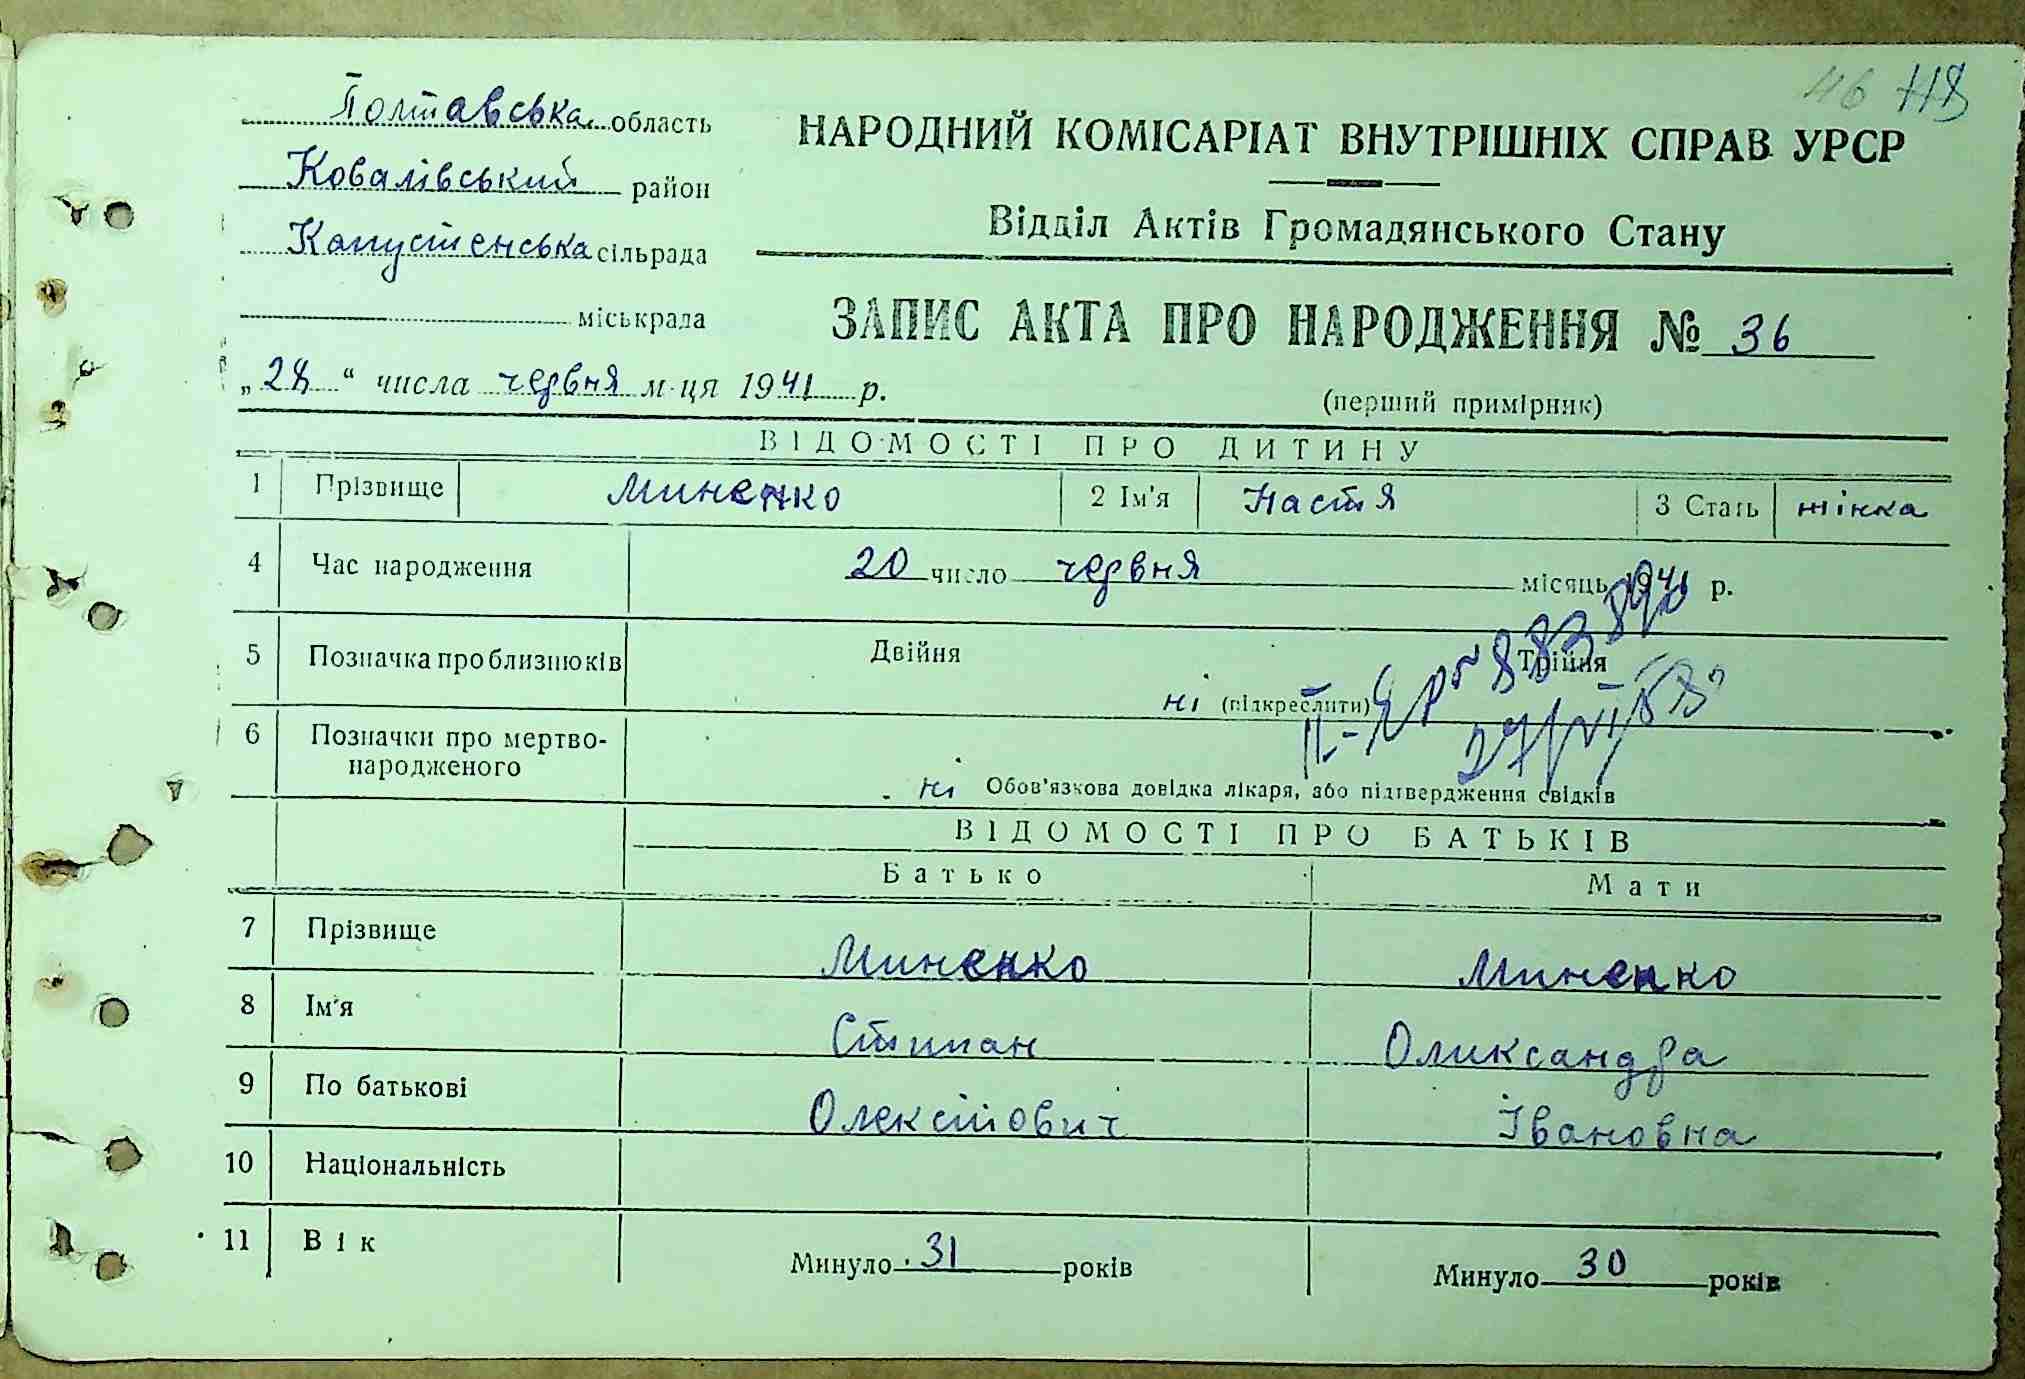 46 118
Полтавська область
Ковалівський район
Капустенська сільрада
міськрада
"28" числа червня м-ця 1941 р.
НАРОДНИЙ КОМІСАРІАТ ВНУТРІШНІХ СПРАВ УРСР
Відділ Актів Громадянського Стану
ЗАПИС АКТА ПРО НАРОДЖЕННЯ № 36
(перший примірник)
ВІДОМОСТІ ПРО ДИТИНУ
1 Прізвище Миненко 2 Ім'я Настя 3 Стать жінка
4 Час народження 20 число червня місяць 1941 р.
5 Позначка про близнюків Двійня Трійня
ні (підкреслити)
6 Позначки про мертво-
народженого
ні Обов'язкова довідка лікаря, або підтвердження свідків
ВІДОМОСТІ ПРО БАТЬКІВ
Батько Мати
7 Прізвище Миненко Миненко
8 Ім'я Стипан Олександра
9 По батькові Олексійович Івановна
10 Національність
11 Вік Минуло 31 років Минуло 30 років